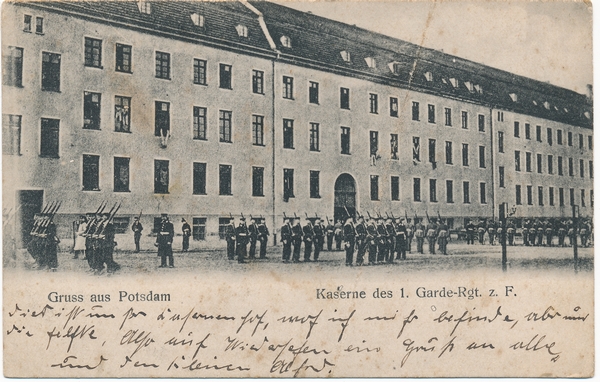 Gruss aus Potsdam
Kaserne des 1. Garde-Rgt. z. F.
dies ist unser Kasernenhof, wo ich mich befinde, aber nur
die Also auf Wiedersehen ein Gruß an alle
und den kleinen